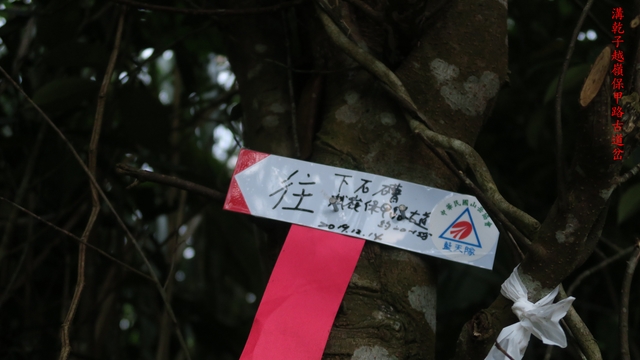 溝乾子越嶺保甲路古道岔
往
下石𥕢
越嶺保甲路古道
2019.12.14
中華民國山岳會
藍天隊